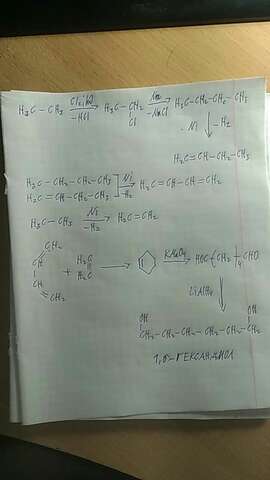 H₃C – CH₃ Cl₂; hν -HCl H₃C – CH₂ Cl Na -NaCl H₃C-CH₂-CH₂-CH₃
Ni -H₂
H₂C=CH-CH₂-CH₃
H₃C-CH₂-CH₂-CH₃
H₂C=CH-CH₂-CH₃ Ni -H₂ H₂C=CH-CH=CH₂
H₃C – CH₃ Ni -H₂ H₂C=CH₂
CH₂
CH
CH
CH₂
+
H₂C
H₂C
KMnO₄
CH₂ 4 CHO
LiAlH₄
OH OH
H₂C-CH₂-CH₂-CH₂-CH₂-CH₂
1,6-ГЕКСАНДИОЛ